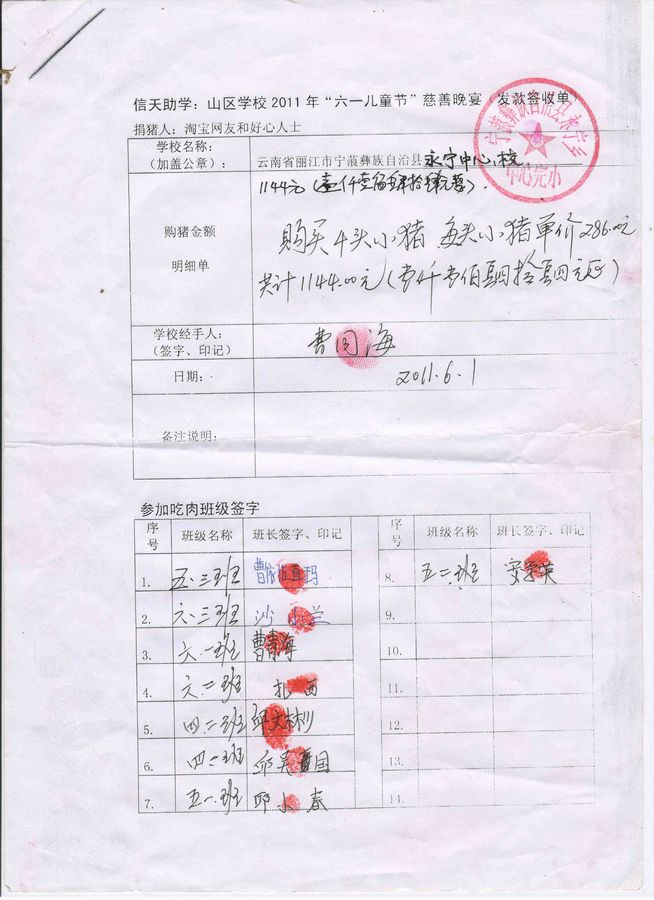 信天助学：山区学校 2011 年“六一儿童节”慈善晚宴（发款签收单）
捐猪人：淘宝网友和好心人士
学校名称：
（加盖公章）：
云南省丽江市宁蒗彝族自治县永宁中心校
宁蒗彝族自治县永宁乡
中心完小
1144元
购猪金额
明细单
购买4头小猪 每头小猪单价286.00元
共计1144.00元（壹仟壹佰肆拾肆元正）
学校经手人：
（签字、印记）
曹同海
日期：
2011.6.1
备注说明：
参加吃肉班级签字
序号 班级名称 班长签字、印记 序号 班级名称 班长签字、印记
1. 五.三班 8. 五二班
2. 六.三班 9.
3. 六.一班 曹青海 10.
4. 六.二班 扎西 11.
5. 四二班 邱文林 12.
6. 四二班 13.
7. 五一班 邱小春 14.